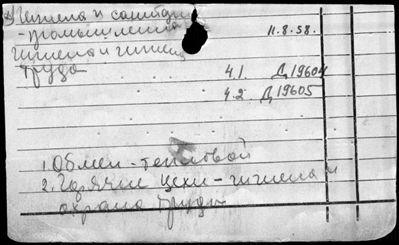 Гигиена и санитар
-промышленна
11.8.58.
гигиена и гигиен
труда
4.1. Д19604
4.2. Д19605
1. Обмен-тепловой
2. Горячие цехи-гигиена и
охрана труда